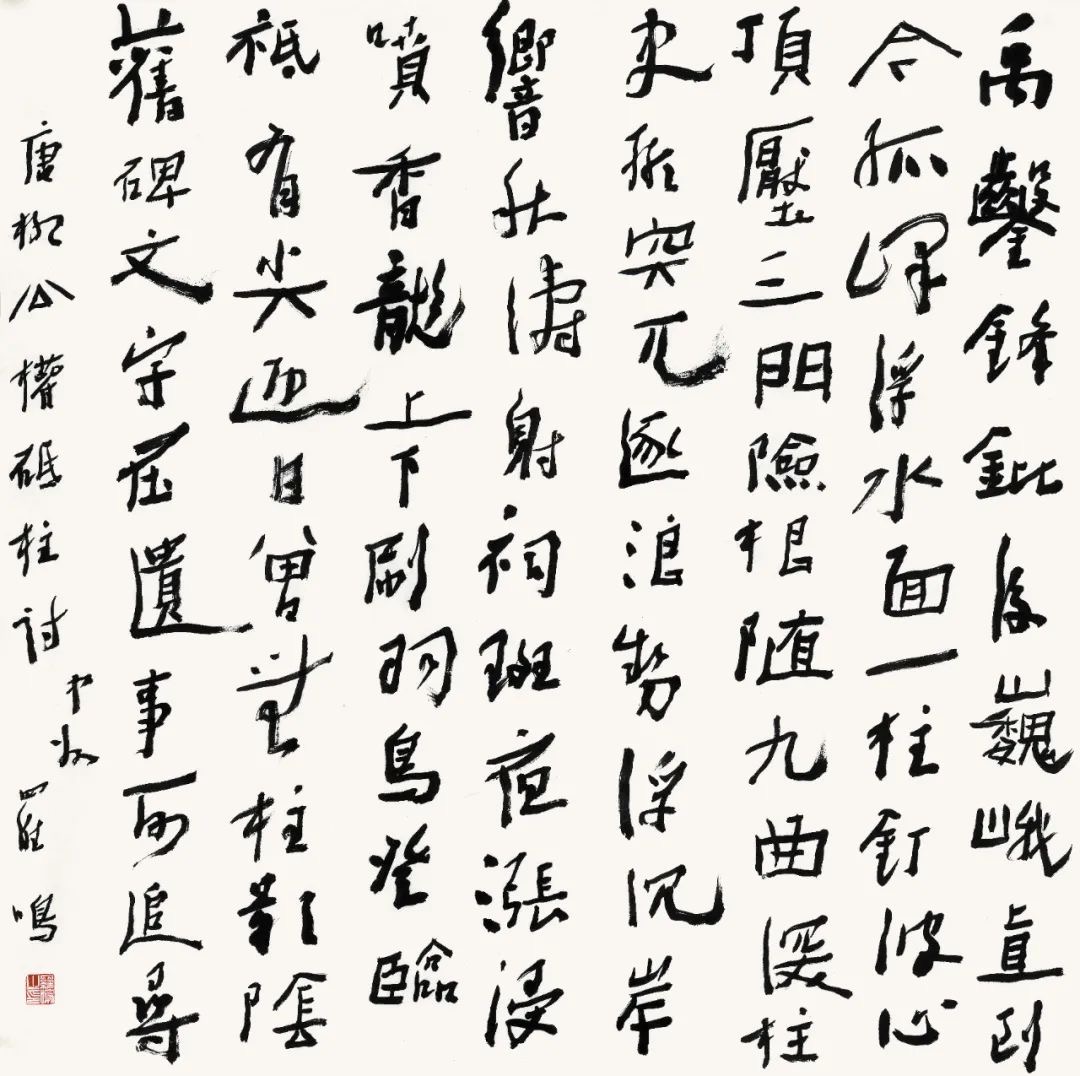 禹鑿鋒鈚後巍峨直到
今孤峰浮水面一柱釘波心
頂壓三門險根随九曲深柱
形突兀逐浪勢浮沉岸
響秋濤射祠斑夜漲浸
噴香龍上下刷羽鳥登臨
祗有尖迎日曾無柱影陰
舊碑文字在遺事可追尋
唐柳公權砥柱詩 羅鳴